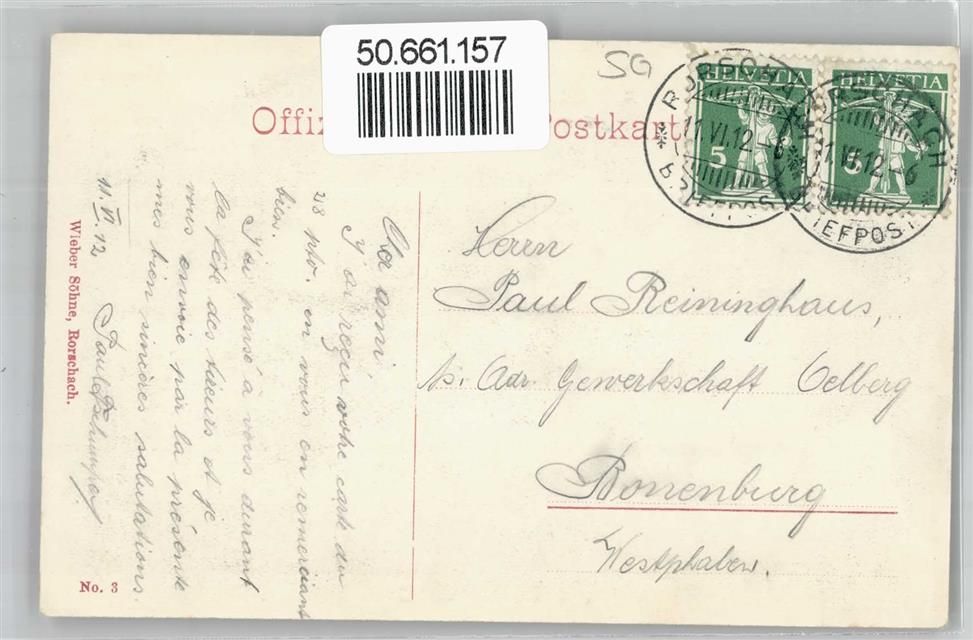 50.661.157
SG
HELVETIA
5
HELVETIA
5
RORSCHACH
11.VI.12.-6
BRIEFPOST
RORSCHACH
11.VI.12.-6
BRIEFPOST
Offiz
Postkart
Herrn
Paul Reininghaus,
p. Adr. Gewerkschaft Oelberg
Bonenburg
Westphalen.
Cher ami!
J'ai reçu votre carte du
28 pto. en vous en remerciant
bien.
J'ai pensé à vous durant
la fête des tireurs et je
vous envoie par la présente
mes bien sincères salutations.
11.VI.12
Wieber Söhne, Rorschach.
No. 3